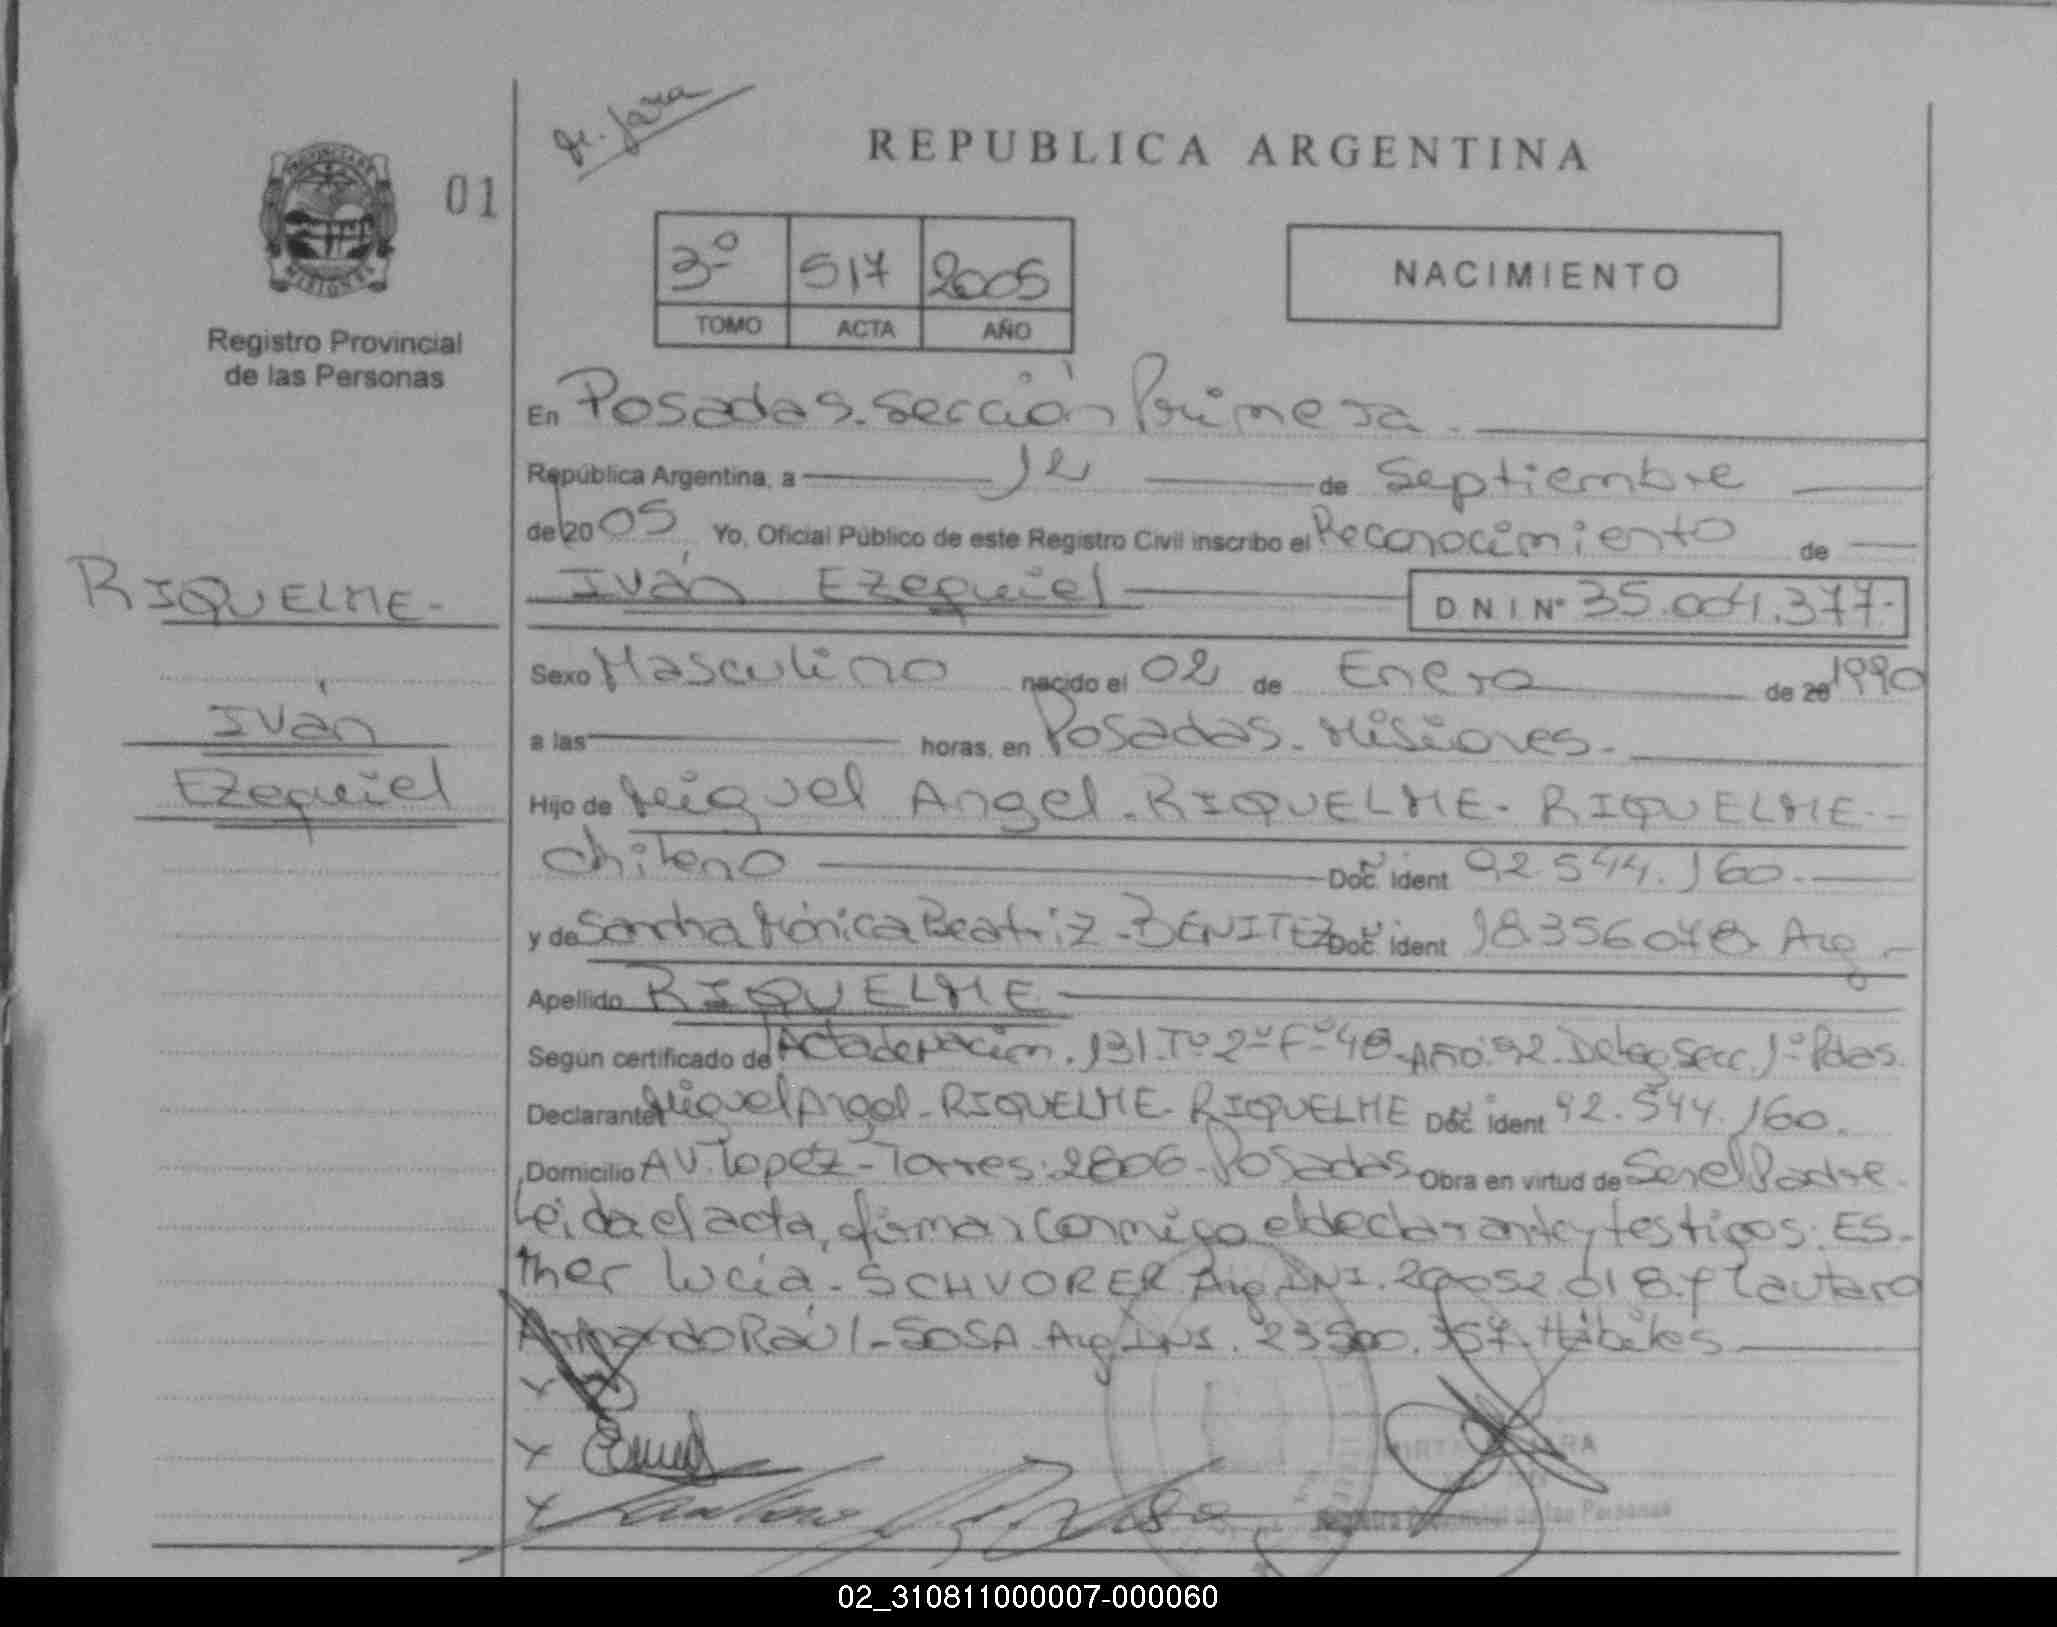 Gr. Jara
REPUBLICA ARGENTINA
01
3º 517 2005
TOMO ACTA AÑO
NACIMIENTO
MISIONES
Registro Provincial
de las Personas
En Posadas. Sección Primera.
República Argentina, a 12 de Septiembre
de 2005 Yo, Oficial Público de este Registro Civil inscribo el Reconocimiento de
RIQUELME.
Iván Ezequiel D N I Nº 35.004.377.
Sexo Masculino nacido el 02 de Enero de 20 1990
Iván
a las horas, en Posadas. Misiones.
Ezequiel
Hijo de Miguel Angel. RIQUELME. RIQUELME.
Chileno Doc. ident 92.544.160.
y de Sandra Mónica Beatriz. BENITEZ Doc. ident 18356078. Arg.
Apellido RIQUELME
Según certificado de Acta de Nacim. 131. Tº 2º Fº 48. Año: 92. Deleg Secc. 1º Pdas.
Declarante Miguel Angel. RIQUELME. RIQUELME Doc. ident 92.544.160.
Domicilio AV. Lopez-Torres. 2806. Posadas Obra en virtud de Ser el Padre.
Leida el acta, firman conmigo el declarante y testigos: ES-
ther Lucía. SCHVORER Arg DNI. 018. y Lautaro
Armando Raúl. SOSA. Arg. DNI. 23500.357. Hábiles
Registro Provincial de las Personas
02_310811000007-000060